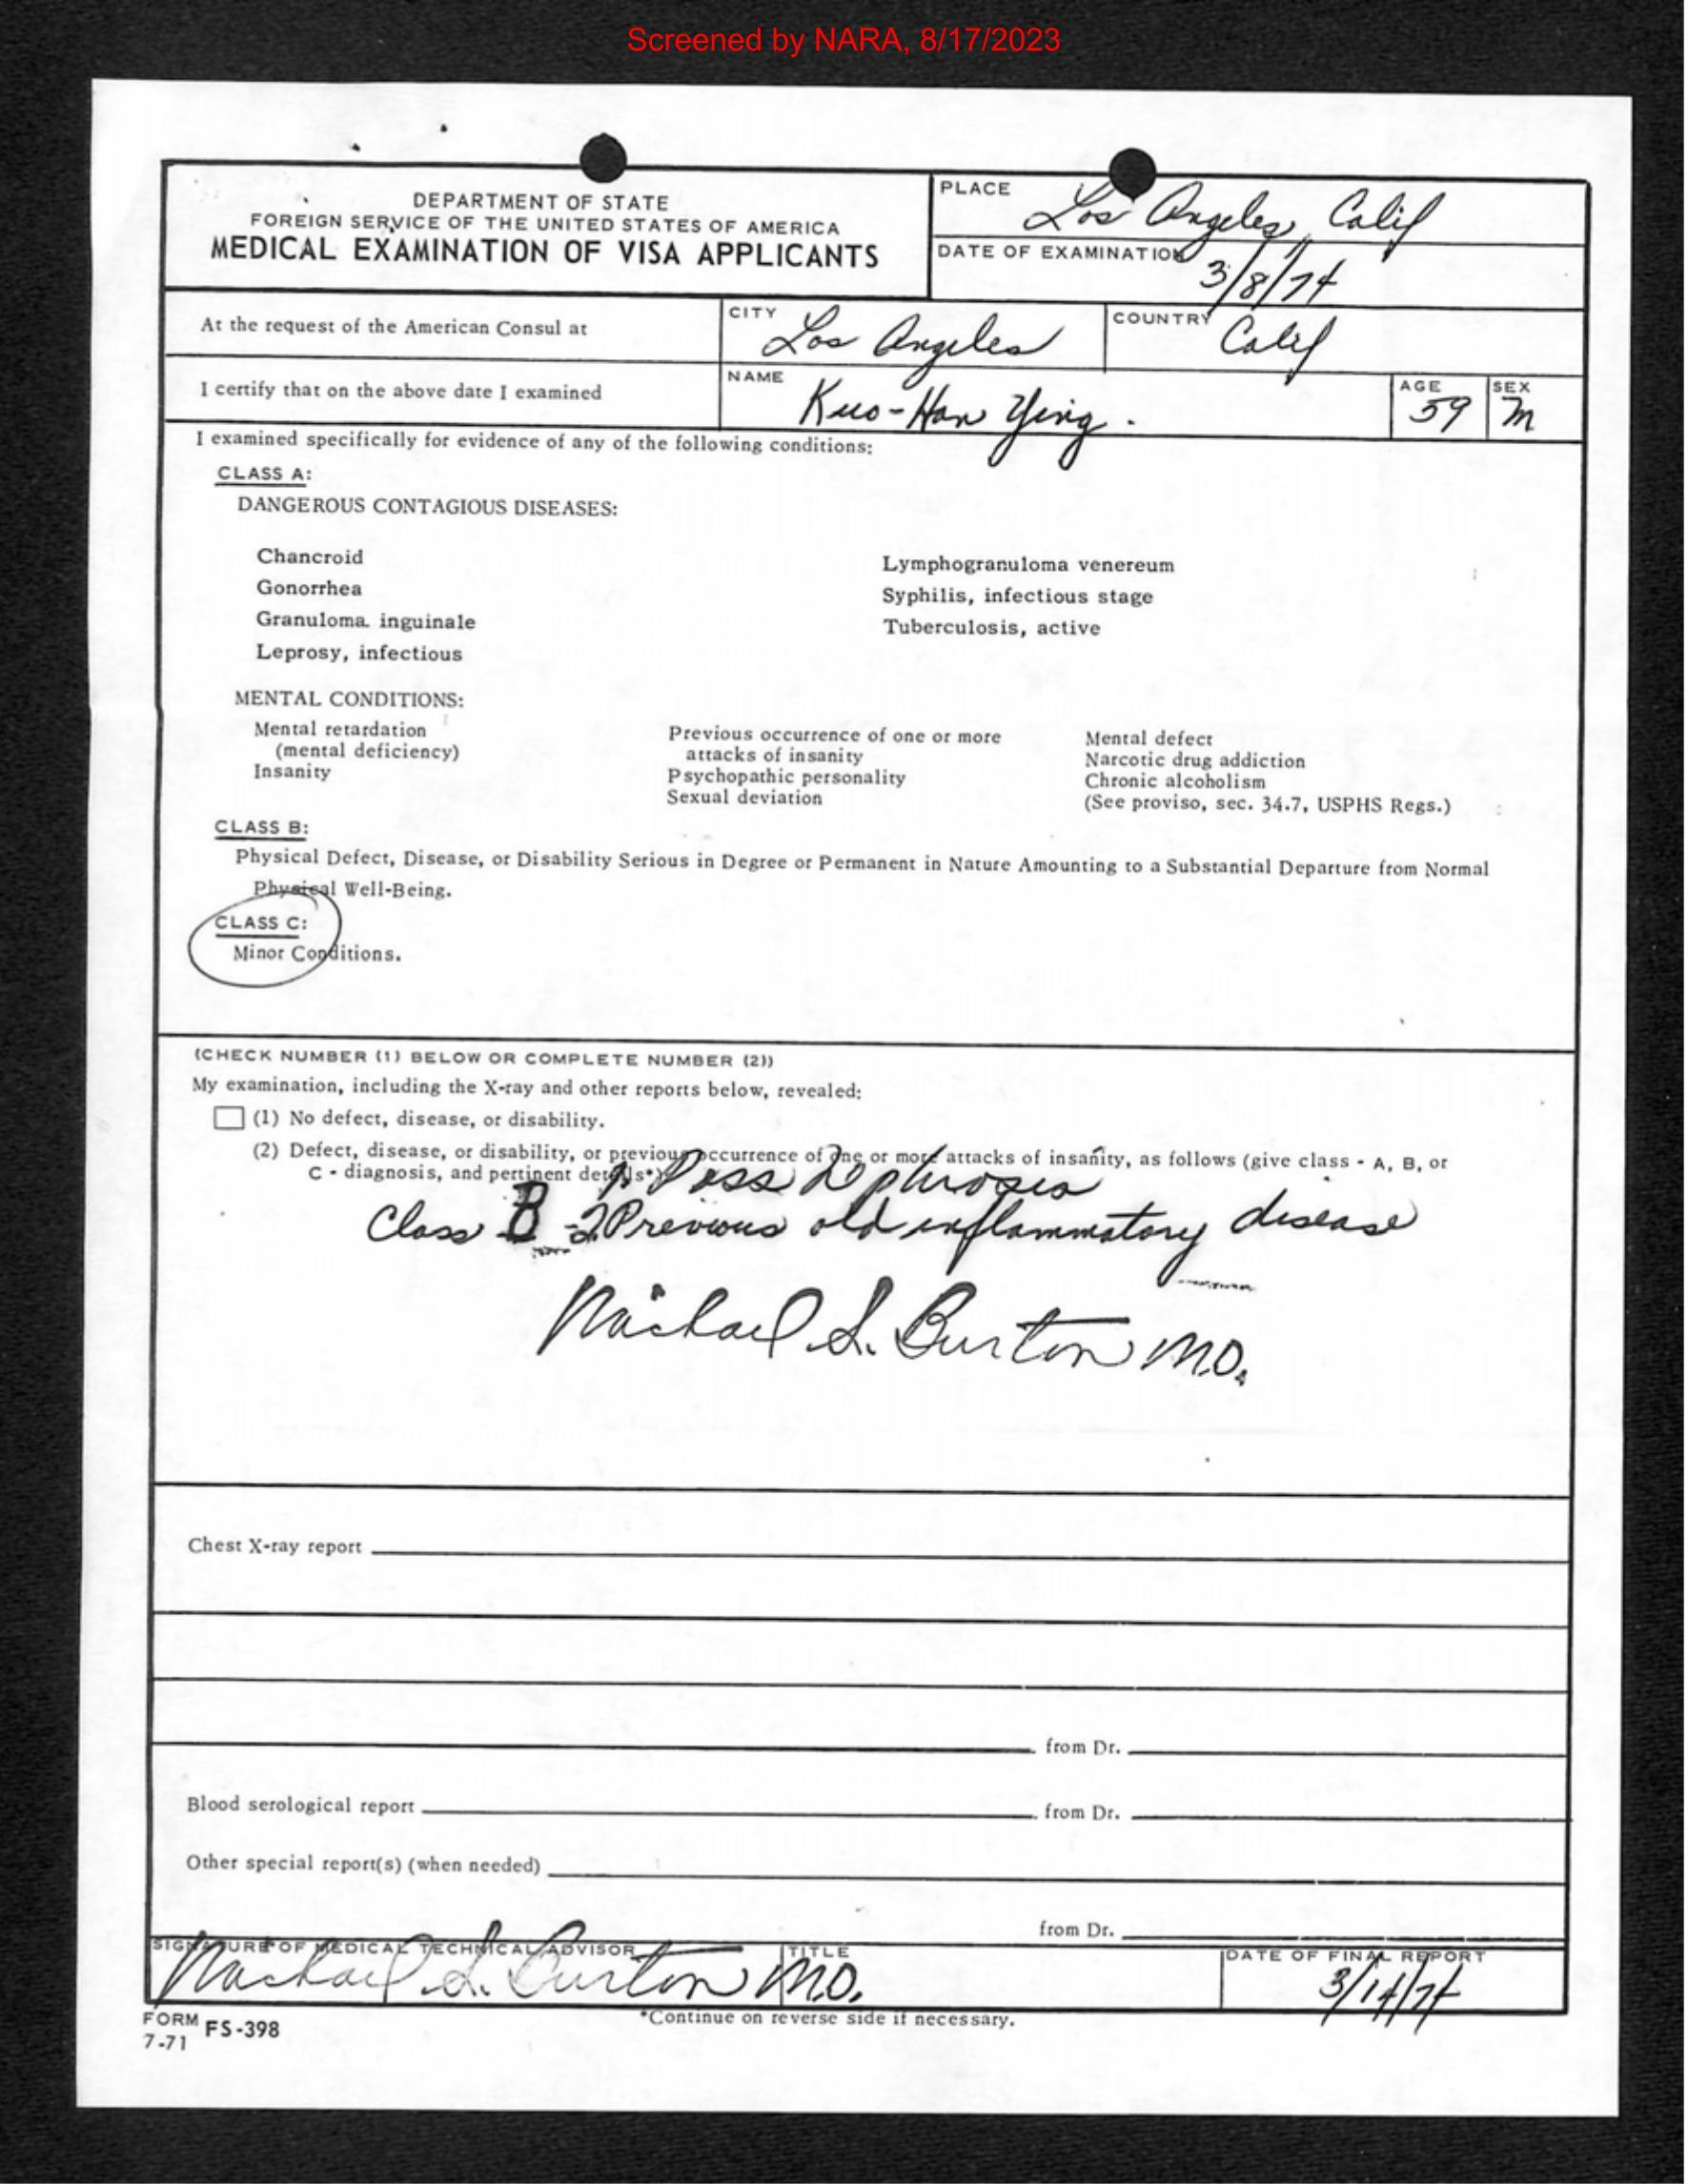 Screened by NARA, 8/17/2023
DEPARTMENT OF STATE
FOREIGN SERVICE OF THE UNITED STATES OF AMERICA
MEDICAL EXAMINATION OF VISA APPLICANTS
PLACE
Los Angeles, Calif
DATE OF EXAMINATION
3/8/74
At the request of the American Consul at
CITY
Los Angeles
COUNTRY
Calif
I certify that on the above date I examined
NAME
Kuo-Han Ying.
AGE
59
SEX
M
I examined specifically for evidence of any of the following conditions:
CLASS A:
DANGEROUS CONTAGIOUS DISEASES:
Chancroid
Gonorrhea
Granuloma inguinale
Leprosy, infectious
Lymphogranuloma venereum
Syphilis, infectious stage
Tuberculosis, active
MENTAL CONDITIONS:
Mental retardation
(mental deficiency)
Insanity
Previous occurrence of one or more
attacks of insanity
Psychopathic personality
Sexual deviation
Mental defect
Narcotic drug addiction
Chronic alcoholism
(See proviso, sec. 34.7, USPHS Regs.)
CLASS B:
Physical Defect, Disease, or Disability Serious in Degree or Permanent in Nature Amounting to a Substantial Departure from Normal
Physical Well-Being.
CLASS C:
Minor Conditions.
(CHECK NUMBER (1) BELOW OR COMPLETE NUMBER (2))
My examination, including the X-ray and other reports below, revealed:
(1) No defect, disease, or disability.
(2) Defect, disease, or disability, or previous occurrence of one or more attacks of insanity, as follows (give class - A, B, or
C - diagnosis, and pertinent details*)
1. Poss
Class B - 2 Previous old inflammatory disease
Michael S. Burton M.D.
Chest X-ray report
from Dr.
Blood serological report
from Dr.
Other special report(s) (when needed)
from Dr.
SIGNATURE OF MEDICAL TECHNICAL ADVISOR
Michael S. Burton
TITLE
M.D.
DATE OF FINAL REPORT
3/14/74
FORM
7-71
FS-398
*Continue on reverse side if necessary.